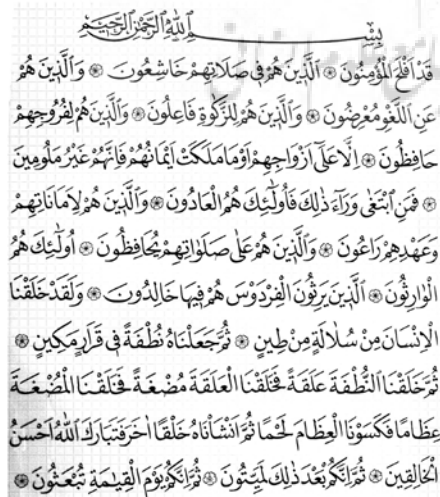 بِسْمِ اللّٰهِ الرَّحْمٰنِ الرَّحِيمِ
قَدْ اَفْلَحَ الْمُؤْمِنُونَ ۞ اَلَّذِينَ هُمْ فِى صَلَاتِهِمْ خَاشِعُونَ ۞ وَالَّذِينَ هُمْ
عَنِ اللَّغْوِ مُعْرِضُونَ ۞ وَالَّذِينَ هُمْ لِلزَّكٰوةِ فَاعِلُونَ ۞ وَالَّذِينَ هُمْ لِفُرُوجِهِمْ
حَافِظُونَ ۞ اِلَّا عَلٰٓى اَزْوَاجِهِمْ اَوْ مَا مَلَكَتْ اَيْمَانُهُمْ فَاِنَّهُمْ غَيْرُ مَلُومِينَ
۞ فَمَنِ ابْتَغٰى وَرَآءَ ذٰلِكَ فَاُولٰٓئِكَ هُمُ الْعَادُونَ ۞ وَالَّذِينَ هُمْ لِاَمَانَاتِهِمْ
وَعَهْدِهِمْ رَاعُونَ ۞ وَالَّذِينَ هُمْ عَلٰى صَلَوَاتِهِمْ يُحَافِظُونَ ۞ اُولٰٓئِكَ هُمُ
الْوَارِثُونَ ۞ اَلَّذِينَ يَرِثُونَ الْفِرْدَوْسَ هُمْ فِيهَا خَالِدُونَ ۞ وَلَقَدْ خَلَقْنَا
الْاِنْسَانَ مِنْ سُلَالَةٍ مِنْ طِينٍ ۞ ثُمَّ جَعَلْنَاهُ نُطْفَةً فِى قَرَارٍ مَكِينٍ ۞
ثُمَّ خَلَقْنَا النُّطْفَةَ عَلَقَةً فَخَلَقْنَا الْعَلَقَةَ مُضْغَةً فَخَلَقْنَا الْمُضْغَةَ
عِظَامًا فَكَسَوْنَا الْعِظَامَ لَحْمًا ثُمَّ اَنْشَاْنَاهُ خَلْقًا اٰخَرَ فَتَبَارَكَ اللّٰهُ اَحْسَنُ
الْخَالِقِينَ ۞ ثُمَّ اِنَّكُمْ بَعْدَ ذٰلِكَ لَمَيِّتُونَ ۞ ثُمَّ اِنَّكُمْ يَوْمَ الْقِيٰمَةِ تُبْعَثُونَ ۞